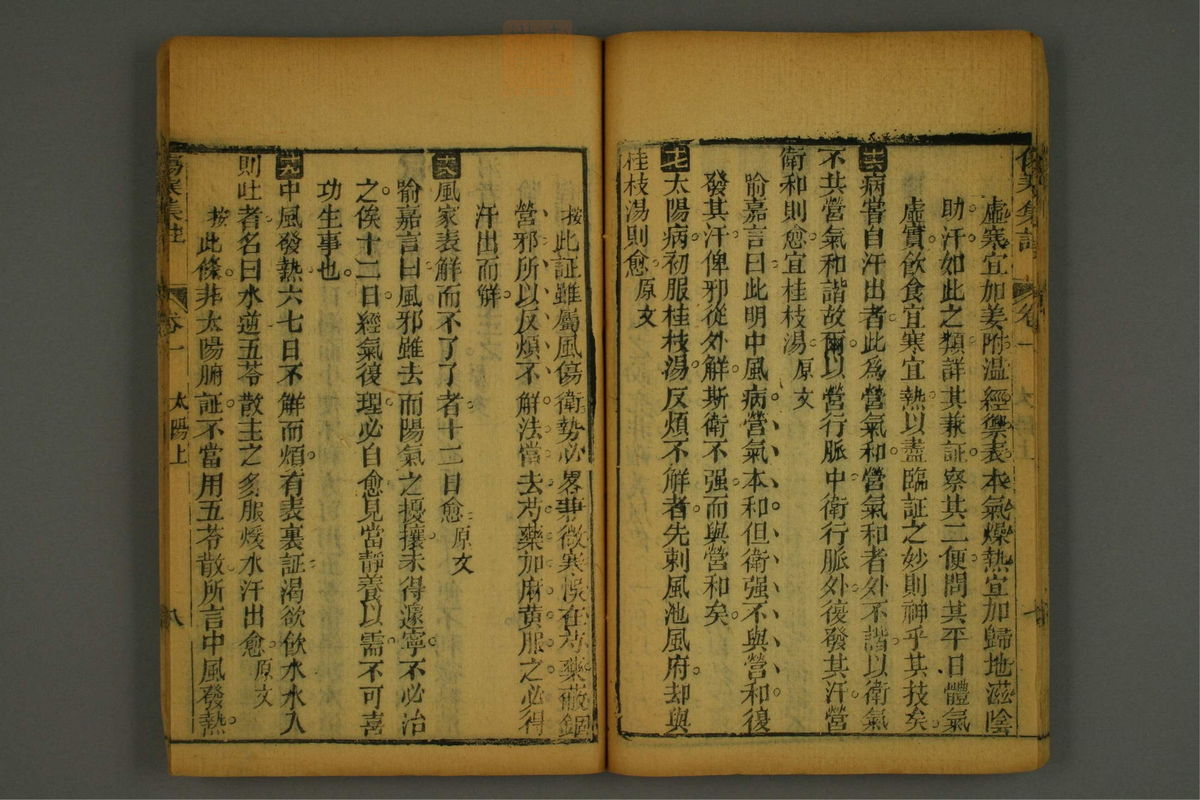 虛寒宜加姜附温經禦表本氣燥熱宜加歸地滋陰
助汗如此之類詳其兼証察其二便問其平日體氣
虛實飲食宜寒宜熱以盡臨証之妙則神乎其技矣
十六病嘗自汗出者此爲營氣和營氣和者外不諧以衛氣
不共營氣和諧故爾以營行脈中衛行脈外復發其汗營
衛和則愈宜桂枝湯原文
喻嘉言曰此明中風病營氣本和但衛强不與營和復
發其汗俾邪從外解斯衛不强而與營和矣
十七太陽病初服桂枝湯反煩不解者先刺風池風府却與
桂枝湯則愈原文
按此証雖屬風傷衛勢必畧兼微寒悞在芍藥蔽錮
營邪所以反煩不解法當去芍藥加麻黄服之必得
汗出而解
十八風家表解而不了了者十二日愈原文
喻嘉言曰風邪雖去而陽氣之擾攘未得遽寧不必治
之俟十二日經氣復理必自愈見當靜養以需不可喜
功生事也
十九中風發熱六七日不解而煩有表裏証渴欲飲水水入
則吐者名曰水逆五苓散主之多服煖水汗出愈原文
按此條非太陽腑証不當用五苓散所言中風發熱
傷寒集註 卷一 太陽上 八